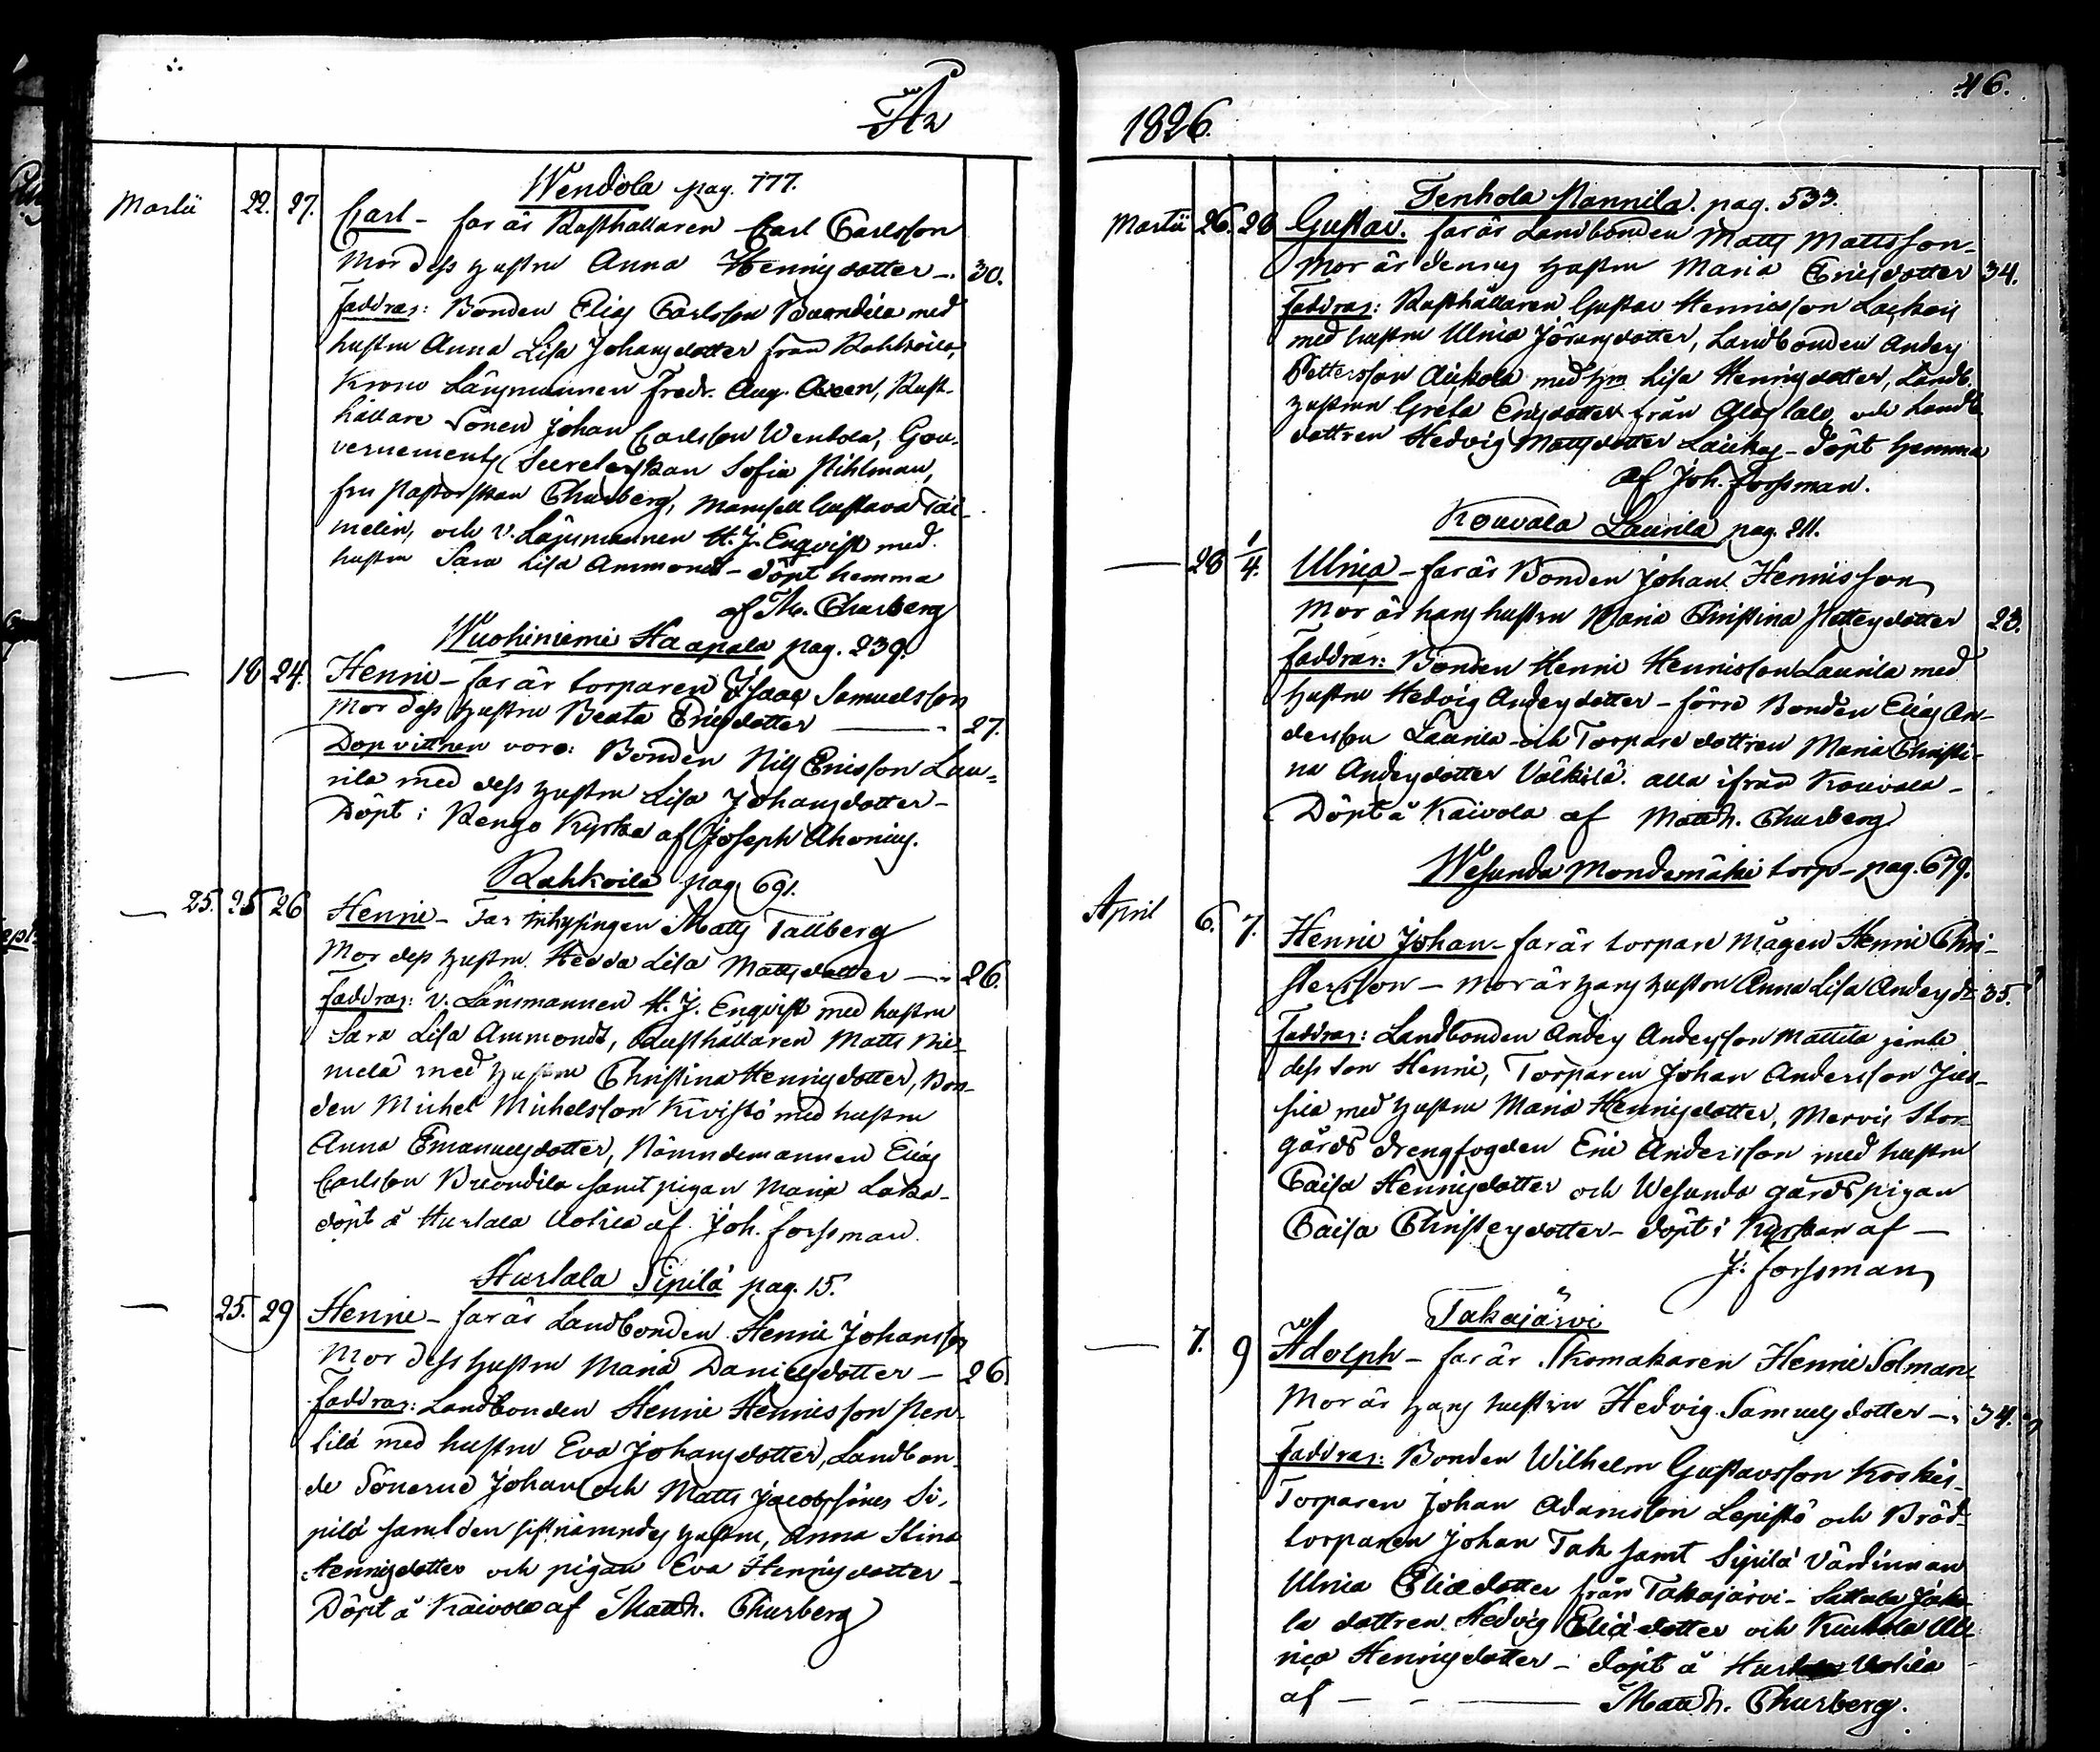 År
Wendola pag. 777.
Martii 22. 27. Carl - far är Rusthållaren Carl Carlsson
Mor dess hustru Anna Henricsdotter - 30.
Faddrar: Bonden Elias Carlsson med
hustru Anna Lisa Johansdotter från Rahkoila,
Krono Länsmannen Fredr. Aug. Rust-
hållare Sonen Johan Carlsson Wendola, Gou-
vernements Secreterskan Sofia Pihlman,
fru Pastorskan Churberg, Mamsell Gustava Tai-
melin, och v. Länsmannen H. J. Enqvist med
hustru Sara Lisa Ammondt - döpt hemma
af Th. Churberg
Wuohiniemi Haapala pag. 239.
— 18 24. Henric - far är torparen Isaac Samuelsson
Mor dess hustru Beata Ericsdotter — 27.
Dopvittnen voro: Bonden Nils Ericsson Lau-
rila med dess hustru Lisa Johansdotter -
Döpt i Rengo Kyrka af Joseph Ahonius.
Rahkoila pag. 691.
— 25. 25 26 Henric - Far inhysingen Matts Tallberg
Mor dess hustru Hedda Lisa Mattsdotter — 26.
Faddrar: v. Länsmannen H. J. Enqvist med hustru
Sara Lisa Ammondt, Rusthållaren Matts Nie-
melä med hustru Christina Henricsdotter, Bon-
den Michel Michelsson Kivistö med hustru
Anna Emanuelsdotter, Nämndemannen Elias
Carlsson samt pigan Maria
döpt å Hurtala Uotila af Joh. Forssman.
Hurtala Sipilä pag. 15.
— 25. 29 Henric - far är Landbonden Henric Johansson
Mor dess hustru Maria Danielsdotter — 26
Faddrar: Landbonden Henric Henricsson Pen-
tilä med hustru Eva Johansdotter, Landbon-
de Sönerne Johan och Matts Jacobssöner Si-
pilä samt den sistnämndes hustru, Anna Stina
Henricsdotter och pigan Eva Henricsdotter -
Döpt å Kaivola af Matth. Churberg
46.
1826.
Tenhola Nannila. pag. 533.
Martii 26. 28 Gustav. far är Landbonden Matts Mattsson -
Mor är dennes hustru Maria Ericsdotter 34.
Faddrar: Rusthållaren Gustav Henricsson
med hustru Ulrica Jöransdotter, Landbonden Anders
Pettersson Aickola med hru Lisa Henricsdotter, Landb.
hustrun Greta Ericsdotter från och Landb.
dottren Hedvig Mattsdotter - Döpt hemma
af Joh. Forssman.
Kouvala Laurila pag. 211.
— 28 1/4. Ulrica - far är Bonden Johan Henricsson
Mor är hans hustru Maria Christina 23.
Faddrar: Bonden Henric Henricsson Laurila med
hustru Hedvig Andersdotter - förre Bonden Elias An-
dersson Laurila och Torpare dottren Maria Christi-
na Andersdotter Välkilä. alla ifrån Kouvala -
Döpt å Kaivola af Matth. Churberg.
Wesunda Mondemäki torp - pag. 679.
April 6. 7. Henric Johan - far är torpare mågen Henric Chri-
stersson - Mor är hans hustru Anna Lisa Andersdr 35.
Faddrar: Landbonden Anders Andersson Mattila jemte
dess son Henric, Torparen Johan Andersson Jus-
sila med hustru Maria Henricsdotter, Mervis Stor-
gårds drengfogden Eric Andersson med hustru
Caisa Henricsdotter och Wesunda gårds pigan
Caisa Christersdotter - döpt i Kyrkan af —
J. Forssman
Takajärvi
— 7. 9 Adolph - far är Skomakaren Henric Solman
Mor är hans hustru Hedvig Samuelsdotter — 34.
Faddrar: Bonden Wilhelm Gustavsson Koskis -
Torparen Johan Adamsson Lepistö och Bröd-
torparen Johan Tak samt Sipilä Värdinnan
Ulrica Eliædotter från Takajärvi - Sattula Jako-
la dottren Hedvig Eliædotter och Kurkela Ul-
rica Henricsdotter - döpt å Hurtala Uotila
af — — Matth. Churberg.